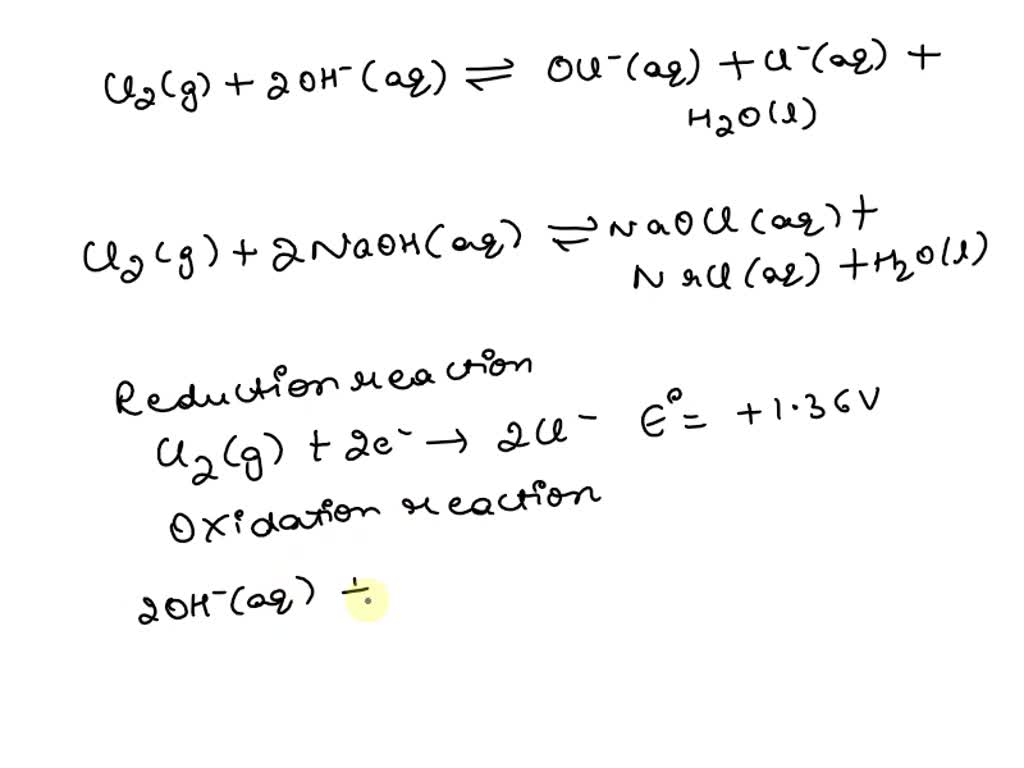 Cl2(g) + 2OH⁻(aq) ⇌ OCl⁻(aq) + Cl⁻(aq) +
H2O(l)
Cl2(g) + 2NaOH(aq) ⇌ NaOCl(aq) +
NaCl(aq) + H2O(l)
Reduction reaction
Cl2(g) + 2e⁻ → 2Cl⁻ E° = +1.36V
Oxidation reaction
2OH⁻(aq) +